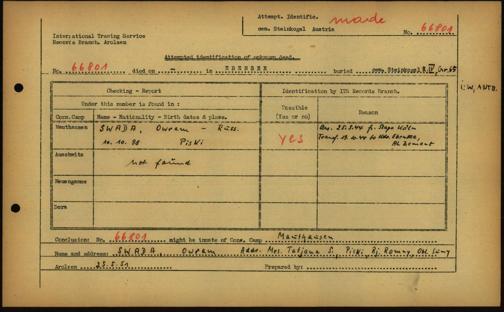 Attempt. Identific. made
cem. Steinkogel Austria
No. 66801
International Tracing Service
Records Branch. Arolsen
Attempted identification of unknown dead.
No. 66801 died on — in EBENSEE buried cem. Steinkogel
Checking - Report
Identification by ITS Records Branch.
Under this number is found in :
Conc.Camp
Name - Nationality - Birth dates & place.
Possible
(Yes or no)
Reason
Mauthausen
SWADA, Owram - Russ.
10.10.98 Piski
yes
Auschwitz
not found
Neuengamme
Dora
Conclusion: No. 66801 might be inmate of Conc. Camp Mauthausen
Name and address: SWADA, Owram Addr. Mrs. Tatjana S., Piski, Rj. Romny,
Arolsen 25.5.51 Prepared by: